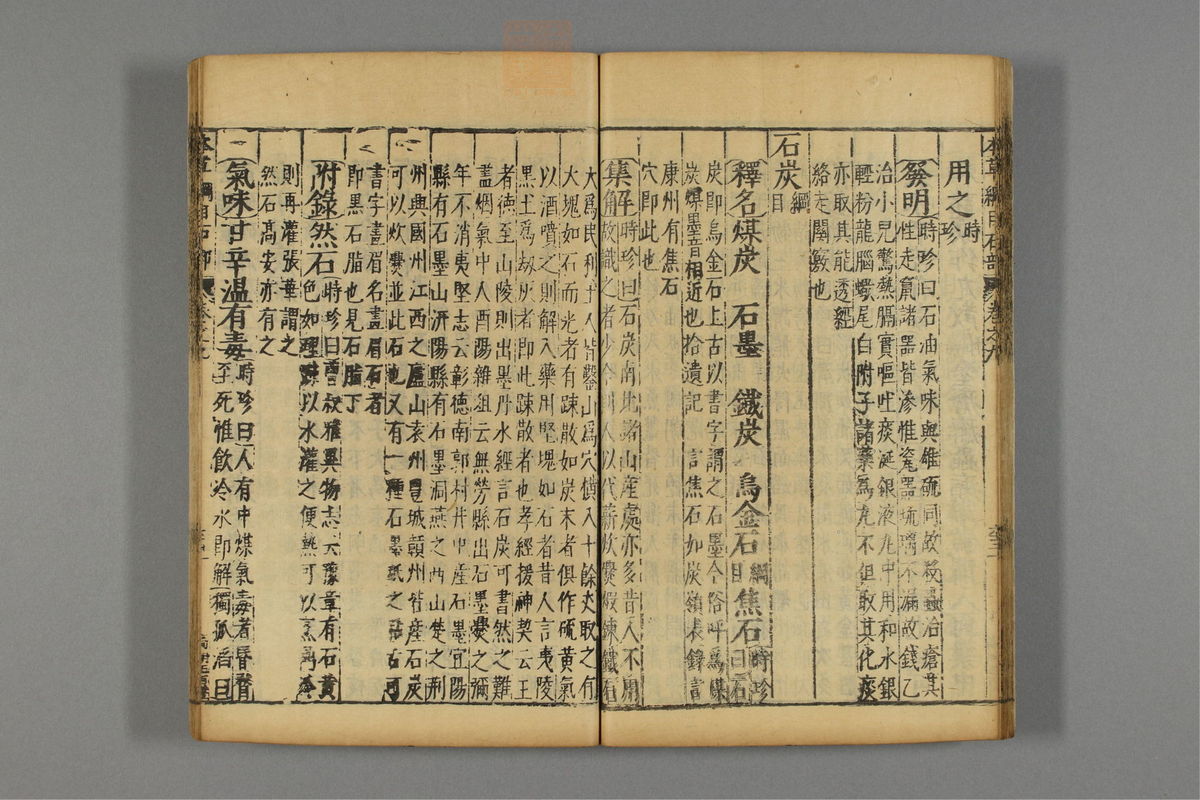 本草綱目石部 卷之九
用之時珍
發明時珍曰石油氣味與雄硫同故殺蟲治瘡其
性走竄諸器皆滲惟瓷器琉璃不漏故錢乙
治小兒驚熱膈實嘔吐痰涎銀液丸中用和水銀
輕粉龍腦蠍尾白附子諸藥為丸不但取其化痰
亦取其能透經
絡走關竅也
石炭綱目
釋名煤炭 石墨 鐵炭 烏金石綱目焦石時珍曰石
炭即烏金石上古以書字謂之石墨今俗呼為煤
炭煤墨音相近也拾遺記言焦石如炭嶺表錄言
康州有焦石
穴即此也
集解時珍曰石炭南北諸山産處亦多昔人不用
故識之者少今則人以代薪炊爨煅鍊鐵石
大爲民利土人皆鑿山爲穴横入十餘丈取之有
大塊如石而光者有疎散如炭末者俱作硫黄氣
以酒噴之則解入藥用堅塊如石者昔人言夷陵
黑土爲劫灰者即此疎散者也孝經援神契云王
者德至山陵則出墨丹水經言石炭可書然之難
盡烟氣中人酉陽雜俎云無勞縣出石墨爨之彌
年不消夷堅志云彰德南郭村井中産石墨宜陽
縣有石墨山汧陽縣有石墨洞燕之西山楚之荆
州興國州江西之廬山袁州豐城贛州皆産石炭
可以炊爨並此石也又有一種石墨䑛之黏舌可
書字畫眉名畫眉石者
即黒石脂也見石脂下
附錄然石時珍曰曹叔雅異物志云豫章有石黄
色如理疎以水灌之便熱可以烹鼎冷
則再灌張華謂之
然石高安亦有之
氣味甘辛溫有毒時珍曰人有中煤氣毒者昏瞀
至死惟飲冷水即解獨孤滔曰
本草綱目石部 卷之九